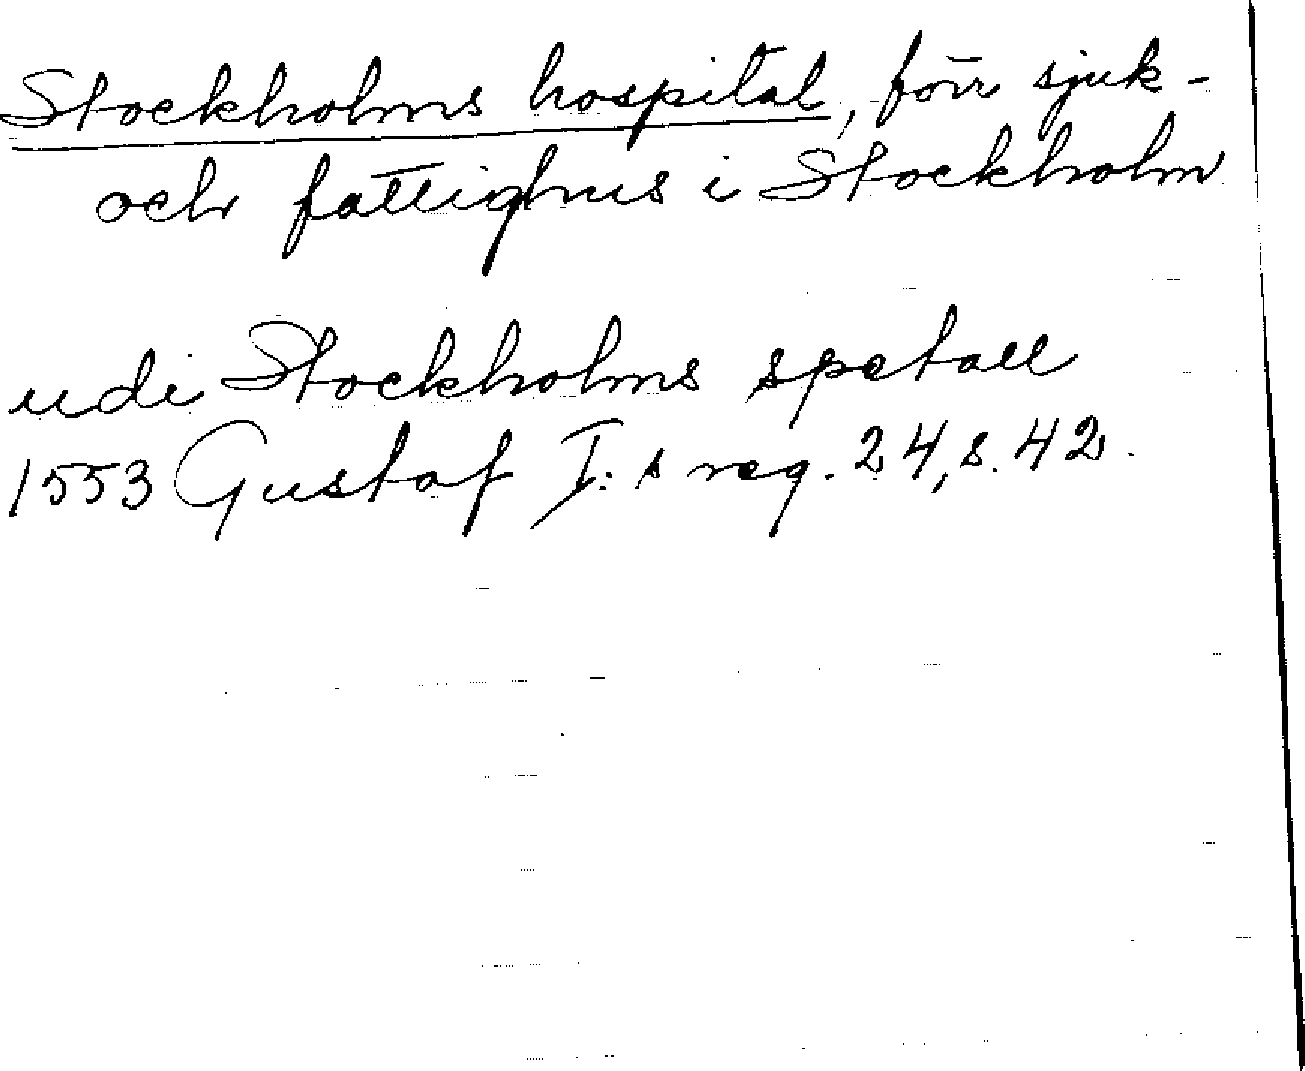 Stockholms hospital, förr sjuk-
och fattighus i Stockholm
udi Stockholms spetall
1553 Gustaf I:s reg. 24, s. 42.